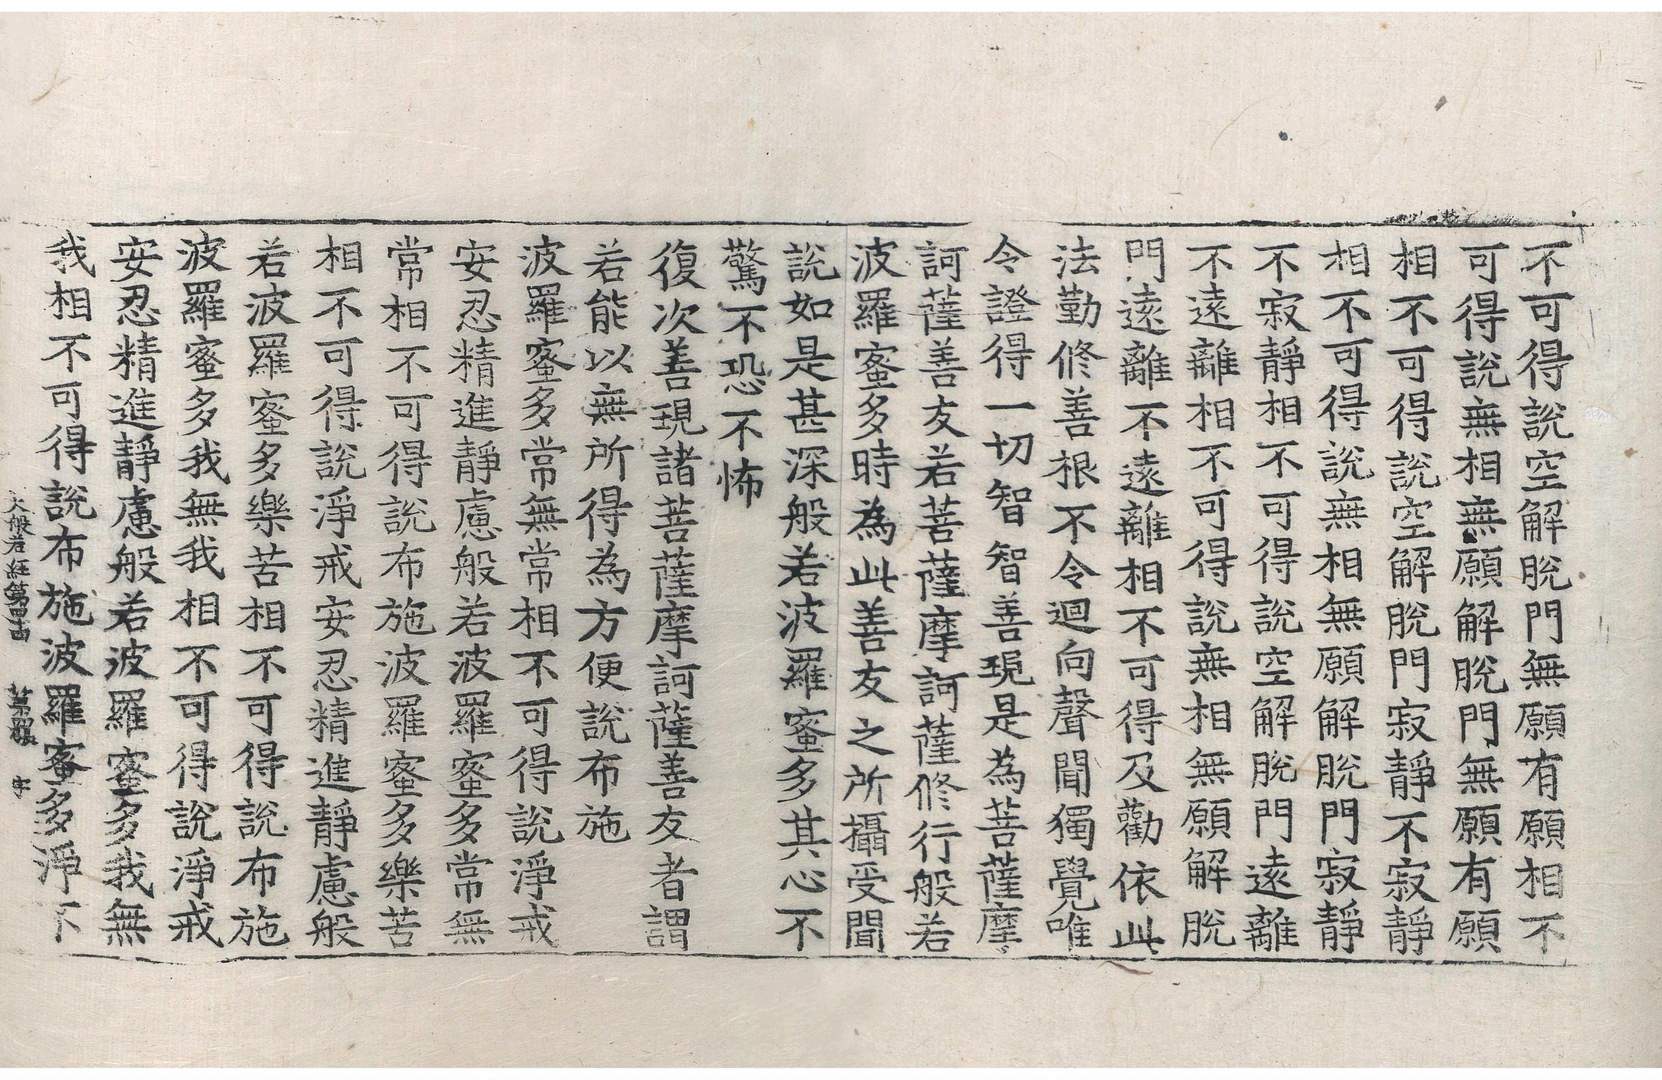 不可得說空解脫門無願有願相不
可得說無相無願解脫門無願有願
相不可得說空解脫門寂靜不寂靜
相不可得說無相無願解脫門寂靜
不寂靜相不可得說空解脫門遠離
不遠離相不可得說無相無願解脫
門遠離不遠離相不可得及勸依此
法勤修善根不令迴向聲聞獨覺唯
令證得一切智智善現是為菩薩摩
訶薩善友若菩薩摩訶薩修行般若
波羅蜜多時為此善友之所攝受聞
說如是甚深般若波羅蜜多其心不
驚不恐不怖
復次善現諸菩薩摩訶薩善友者謂
若能以無所得為方便說布施
波羅蜜多常無常相不可得說淨戒
安忍精進靜慮般若波羅蜜多常無
常相不可得說布施波羅蜜多樂苦
相不可得說淨戒安忍精進靜慮般
若波羅蜜多樂苦相不可得說布施
波羅蜜多我無我相不可得說淨戒
安忍精進靜慮般若波羅蜜多我無
我相不可得說布施波羅蜜多淨不
大般若經第四